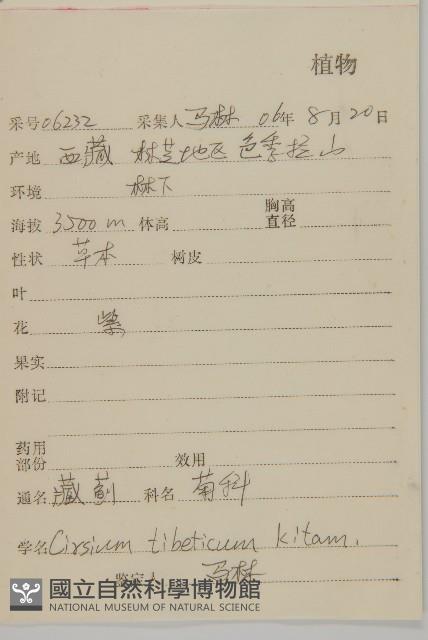 植物
采号 06232 采集人 马林 06年 8月20日
产地 西藏 林芝地区 色季拉山
环境 林下
海拔 3500 m 体高 胸高直径
性状 草本 树皮
叶
花 紫
果实
附记
药用部份 效用
通名 藏蓟 科名 菊科
学名 Cirsium tibeticum kitam.
鉴定人 马林
國立自然科學博物館
NATIONAL MUSEUM OF NATURAL SCIENCE